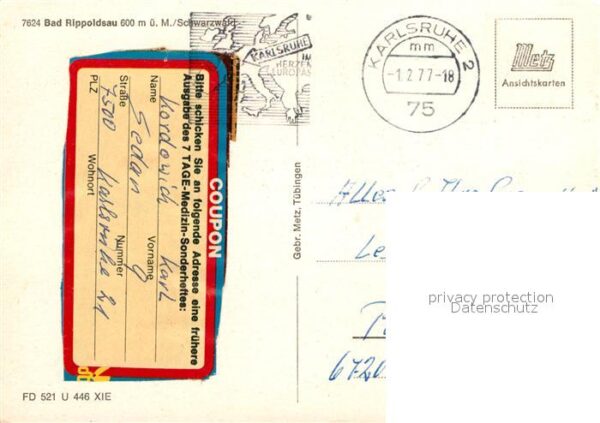 7624 Bad Rippoldsau 600 m ü. M./Schwarzwald
KARLSRUHE
IM
HERZEN
EUROPAS
KARLSRUHE 2
mm
-1.2.77-18
75
Metz
Ansichtskarten
COUPON
Bitte schicken Sie an folgende Adresse eine frühere
Ausgabe des 7 TAGE-Medizin-Sonderheftes:
Kordowich Karl
Name Vorname
Sedan 9
Straße Nummer
7500 Karlsruhe 21
PLZ Wohnort
Gebr. Metz, Tübingen
privacy protection
Datenschutz
672
FD 521 U 446 XIE